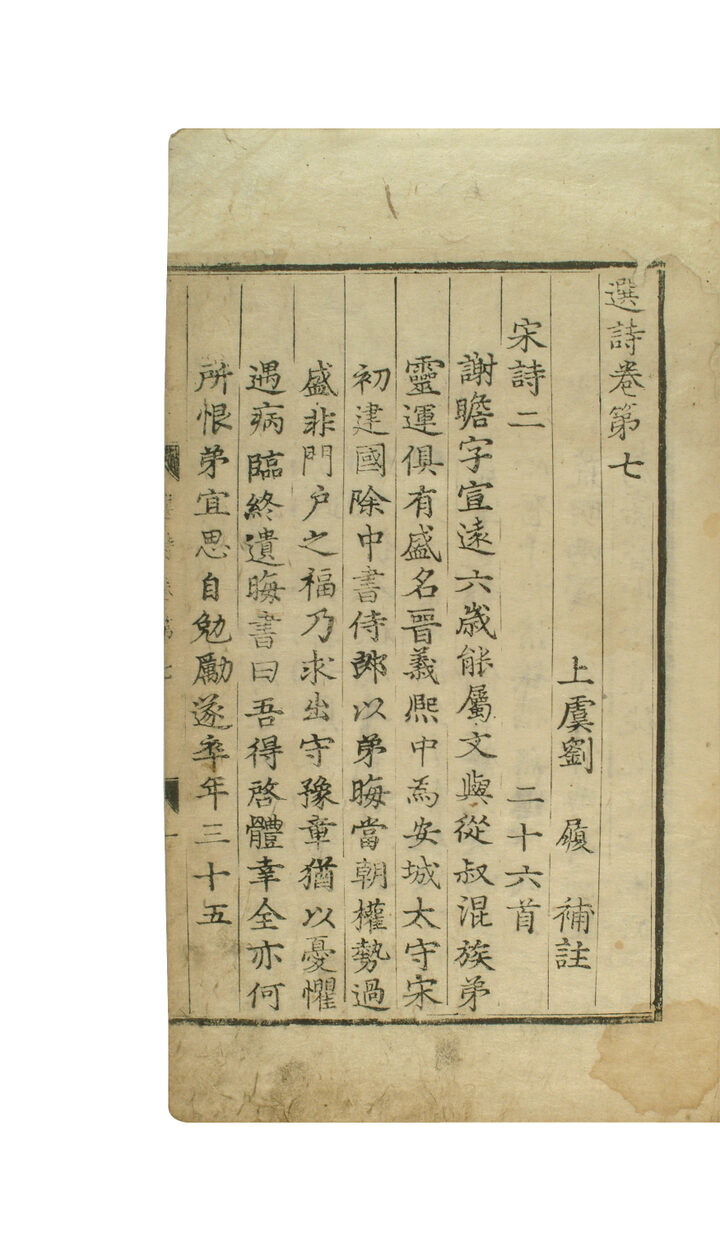 選詩卷第七
上虞劉 履 補註
宋詩二 二十六首
謝瞻字宣遠六歲能屬文與從叔混族弟
靈運俱有盛名晉義熙中為安城太守宋
初建國除中書侍郎以弟晦當朝權勢過
盛非門户之福乃求出守豫章猶以憂懼
遇病臨終遺晦書曰吾得啓體幸全亦何
所恨弟宜思自勉勵遂卒年三十五